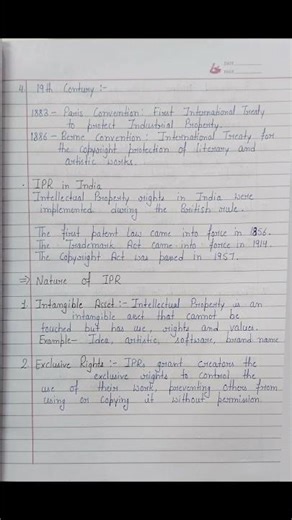 DATE
PAGE
4. 19th Century :-
1883 - Paris Convention: First International Treaty
to protect Industrial Property.
1886 - Berne Convention: International Treaty for
the copyright protection of literary and
artistic works.
• IPR in India
Intellectual Property rights in India were
implemented during the British rule.
The first patent law came into force in 1856.
The Trademark Act came into force in 1914.
The Copyright Act was passed in 1957.
⇒ Nature of IPR
1. Intangible Asset :- Intellectual Property is an
intangible asset that cannot be
touched but has use, rights and value.
Example - Idea, artistic, software, brand name
2. Exclusive Rights :- IPRs grant creators the
exclusive rights to control the
use of their work, preventing others from
using or copying it without permission.